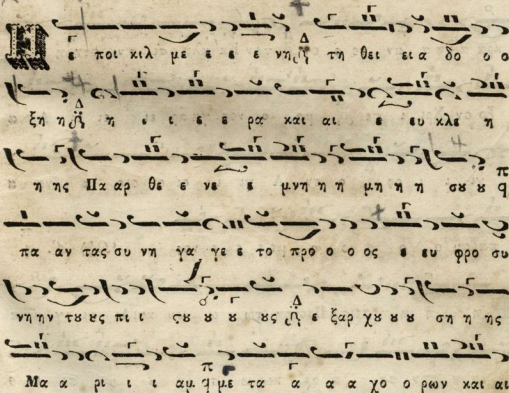 Π ε ποι κιλ με ε ε ε νη η τη θει ει α δο ο ο
ξη η η η ι ε ε ε ρα και αι ε ευ κλε η
η ης Πα αρ θε ε νε ε μνη η η μη η η σȣ ȣ
πα αν τας συ νη γα γε ε το προ ο ο ος ε ευ φρο συ
νη ην τȣ ȣς πι ι ςȣ ȣ ȣ ȣς ε ξαρ χȣ ȣ ȣ ση η ης
Μα α ρι ι ι αμ με τα α α α χο ο ρων και αι